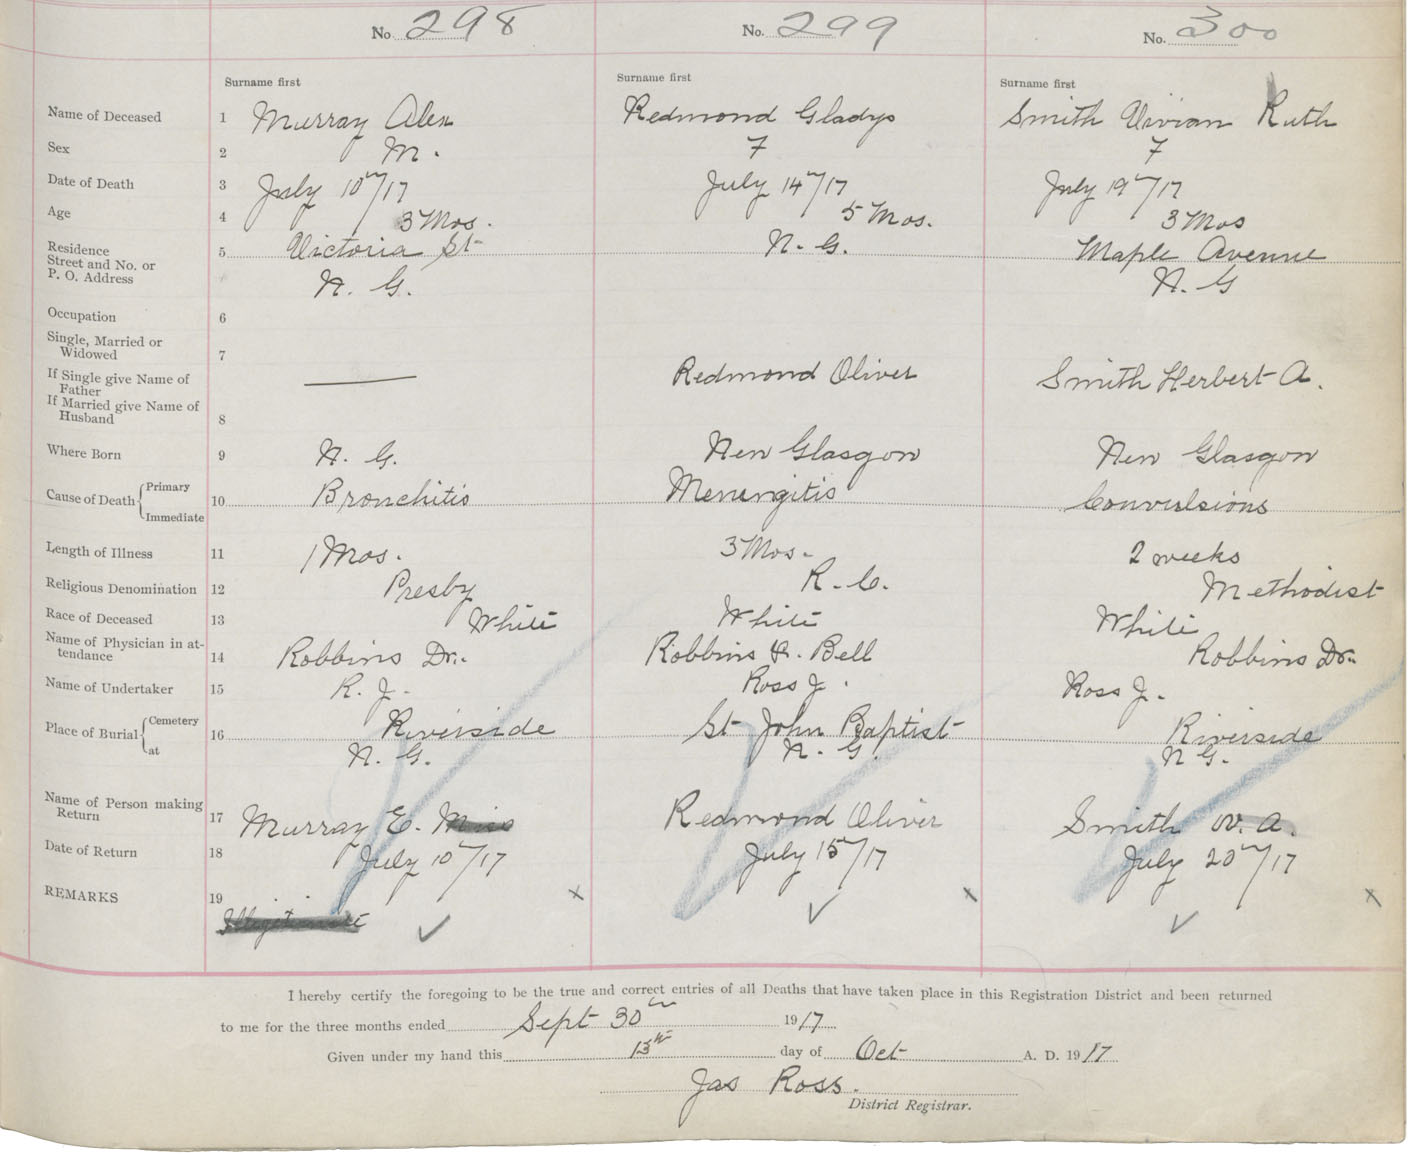 No. 298
No. 299
No. 300
Surname first
Surname first
Surname first
Name of Deceased 1 Murray Alex
Redmond Gladys
Smith Vivian Ruth
Sex 2 M.
F
F
Date of Death 3 July 10th/17
July 14th/17
July 19th/17
Age 4 3 Mos.
5 Mos.
3 Mos
Residence
Street and No. or
P. O. Address
5 Victoria St
N. G.
N. G.
Maple Avenue
N. G
Occupation 6
Single, Married or
Widowed
7
If Single give Name of
Father
If Married give Name of
Husband
8
Redmond Oliver
Smith Herbert A.
Where Born 9 N. G.
New Glasgow
New Glasgow
Cause of Death Primary
Immediate
10 Bronchitis
Menengitis
Convulsions
Length of Illness 11 1 Mos.
3 Mos.
2 weeks
Religious Denomination 12 Presby
R. C.
Methodist
Race of Deceased 13 White
White
White
Name of Physician in at-
tendance
14 Robbins Dr.
Robbins & Bell
Robbins Dr.
Name of Undertaker 15 R. J.
Ross J.
Ross J.
Place of Burial Cemetery
at
16 Riverside
N. G.
St John Baptist
N. G.
Riverside
N G.
Name of Person making
Return
17 Murray E. Miss
Redmond Oliver
Smith W. A.
Date of Return 18 July 10th/17
July 15th/17
July 20th/17
REMARKS 19
Illegitimate
I hereby certify the foregoing to be the true and correct entries of all Deaths that have taken place in this Registration District and been returned
to me for the three months ended Sept 30th 1917
Given under my hand this 13th day of Oct A. D. 1917
Jas Ross.
District Registrar.